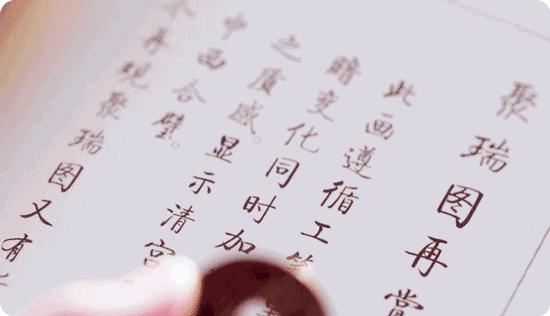 聚瑞图再賞
此画遵循工笔
暗变化同时加
之质感。显示清宫
中西合璧。
再现聚瑞图又有